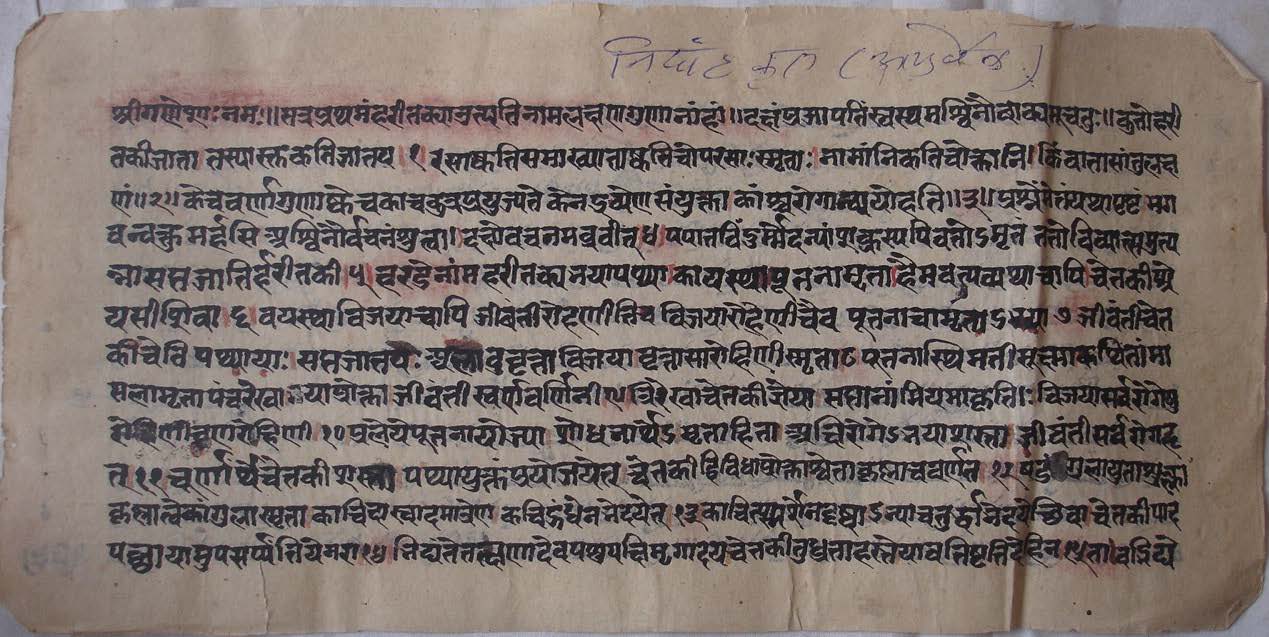 निघांट कृत (आयुर्वेक)
श्रीगणेशाय नमः॥ मत्रप्रथमंहरीतक्याउत्पत्तिनामलक्षणगुणानांह॥ दक्षंप्रजापतिंस्वस्थमश्विनौवाक्यमूचतुः॥ कुतोहरी
तकीजाता तस्यास्तकतिजातय १ रसाष्कतिसमाख्याताष्कतिचोपरसाःस्मृताः नामांनिकतिचोक्तानि किंवातासांतुलक्ष
णं॥२॥ केचवर्णागुणाष्केचकाचकुत्रप्रयुज्यते केनद्रव्येणसंयुक्ता कांश्चरोगान्व्यपोहति॥३॥ प्रश्नमेतंयथापृष्टंभग
वन्वक्तुमर्हसि अश्विनौर्वचनंश्रुत्वा दक्षोवचनमब्रवीत् ४ पपातविंदुर्मेदिन्यांशक्रस्यपिवतोऽमृतं ततोदिव्यात्समुत्प
न्नासप्तजातिर्हरीतकी ५ हरस्तेनांमहरीतक्यभयापथ्या कायस्थापूतनामृता हैमवत्यव्यथाचापिचेतकीश्रे
यसीशिवा ६ वयस्थाविजयाचापि जीवंतीरोहणीतिच विजयारोहणीचैव पूतनाचामृताऽभया ७ जीवंतीचेत
कीचेवि पथ्यायाः सप्तजातयः अलावुवृत्ता विजया वृत्तासारोहिणीस्मृता ८ पूतनास्थिमतीसूक्ष्माकथितामां
मलामृता पंचरेखाभयाप्रोक्ता जीवंतीस्वर्णवर्णिनी ९ त्रिरेखाचेतकीज्ञेया सप्तानांमियमाकृतिः विजयासर्वरोगेषु
रोहिणीव्रणरोहिणी १० प्रलेपेपूतनायोज्या शोधनार्थेऽमृताहिता अक्षिरोगेऽभयाशस्ता जीवंतीसर्वरोगहृ
त् ११ चूर्णार्थेचेतकीशस्ता यथायुक्तंप्रयोजयेत् चेतकीद्विविधाप्रोक्ताश्वेताकृष्णाचवर्णत १२ षडंगुलायताशुक्ला
कृष्णात्वेकांगुलास्मृता काचिदास्वादमात्रेण काचिद्गंधेनभेदयेत् १३ काचित्स्पर्शेनदृष्ट्याऽन्याचतुर्द्धाभेदयेच्छिवा चेतकीपाद
पच्छायामुपसर्प्पंतियेनरा १४ भिद्यंतेतत्क्षणादेवपशुपक्षिमृगादय चेतकीतुधृताहस्तेयावत्तिष्टतिदेहिन १५ तावद्भिद्ये